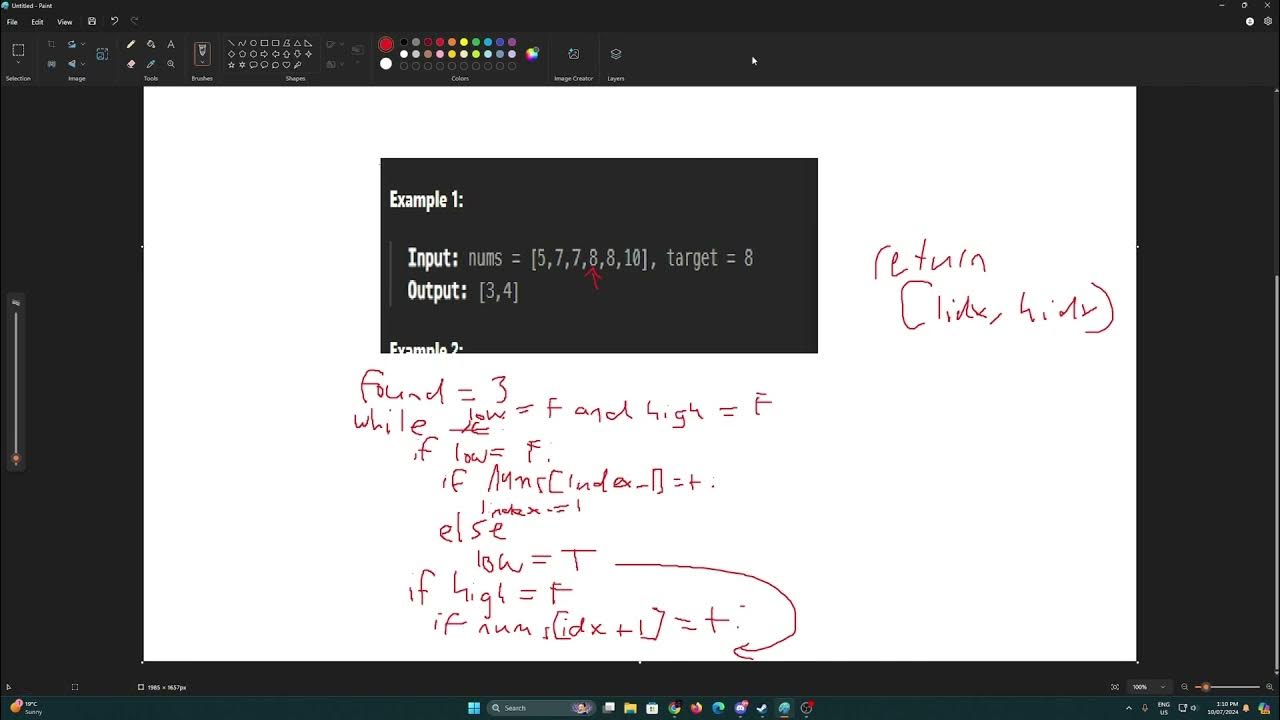 Untitled - Paint
File Edit View
Selection Image Tools Brushes Shapes Colors Image Creator Layers
Example 1:
Input: nums = [5,7,7,8,8,10], target = 8
Output: [3,4]
Example 2:
return
[lidx, hidx]
found = 3
while low = F and high = F
if low = F:
if nums[index-1] = t:
lindex -= 1
else
low = T
if high = F
if nums[idx + 1] = t:
1985 × 1657px
100%
19°C
Sunny
Search
ENG
US
1:10 PM
10/07/2024